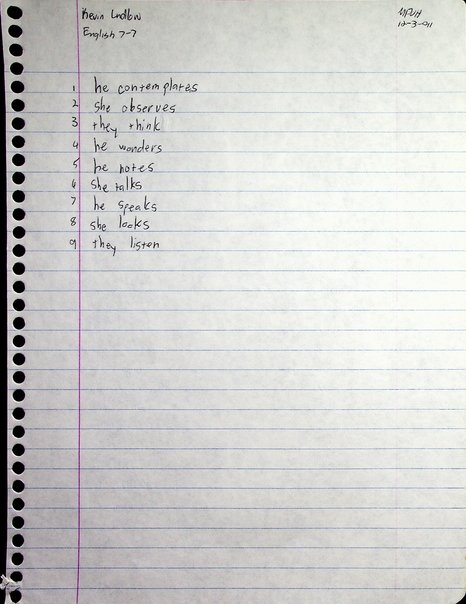 Kevin Ludlow
English 7-7
12-3-91
1 he contemplates
2 she observes
3 they think
4 he wonders
5 he notes
6 she talks
7 he speaks
8 she looks
9 they listen